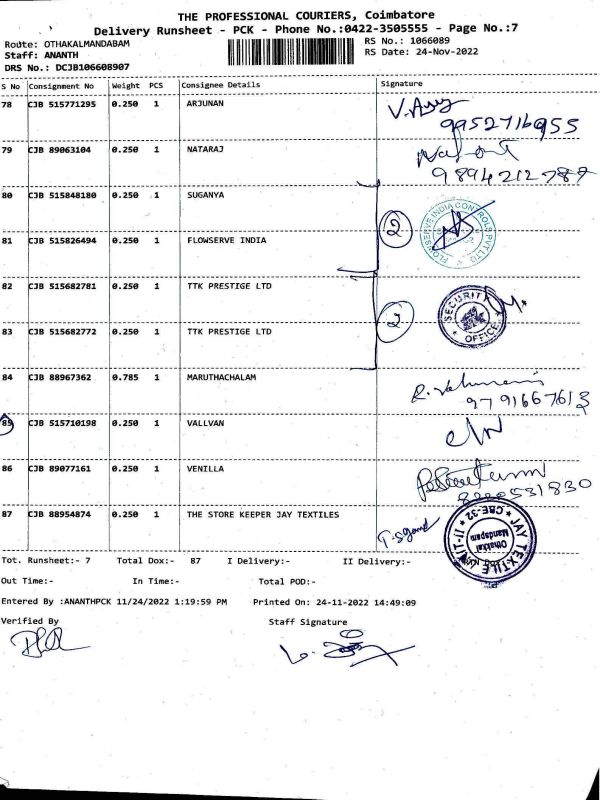 THE PROFESSIONAL COURIERS, Coimbatore
Delivery Runsheet - PCK - Phone No.:0422-3505555 - Page No.:7
Route: OTHAKALMANDABAM
RS No.: 1066089
Staff: ANANTH
RS Date: 24-Nov-2022
DRS No.: DCJB106608907
S No Consignment No Weight PCS Consignee Details Signature
78 CJB 515771295 0.250 1 ARJUNAN
9952716955
79 CJB 89063104 0.250 1 NATARAJ
9894212787
80 CJB 515848180 0.250 1 SUGANYA
2
FLOWSERVE INDIA CONTROLS PVT LTD
81 CJB 515826494 0.250 1 FLOWSERVE INDIA
82 CJB 515682781 0.250 1 TTK PRESTIGE LTD
2
SECURITY OFFICE
83 CJB 515682772 0.250 1 TTK PRESTIGE LTD
84 CJB 88967362 0.785 1 MARUTHACHALAM
9791667613
85 CJB 515710198 0.250 1 VALLVAN
86 CJB 89077161 0.250 1 VENILLA
87 CJB 88954874 0.250 1 THE STORE KEEPER JAY TEXTILES
JAY TEXTILE UNIT-II CBE-32
Othakkal Mandapam
Tot. Runsheet:- 7 Total Dox:- 87 I Delivery:- II Delivery:-
Out Time:- In Time:- Total POD:-
Entered By :ANANTHPCK 11/24/2022 1:19:59 PM Printed On: 24-11-2022 14:49:09
Verified By Staff Signature